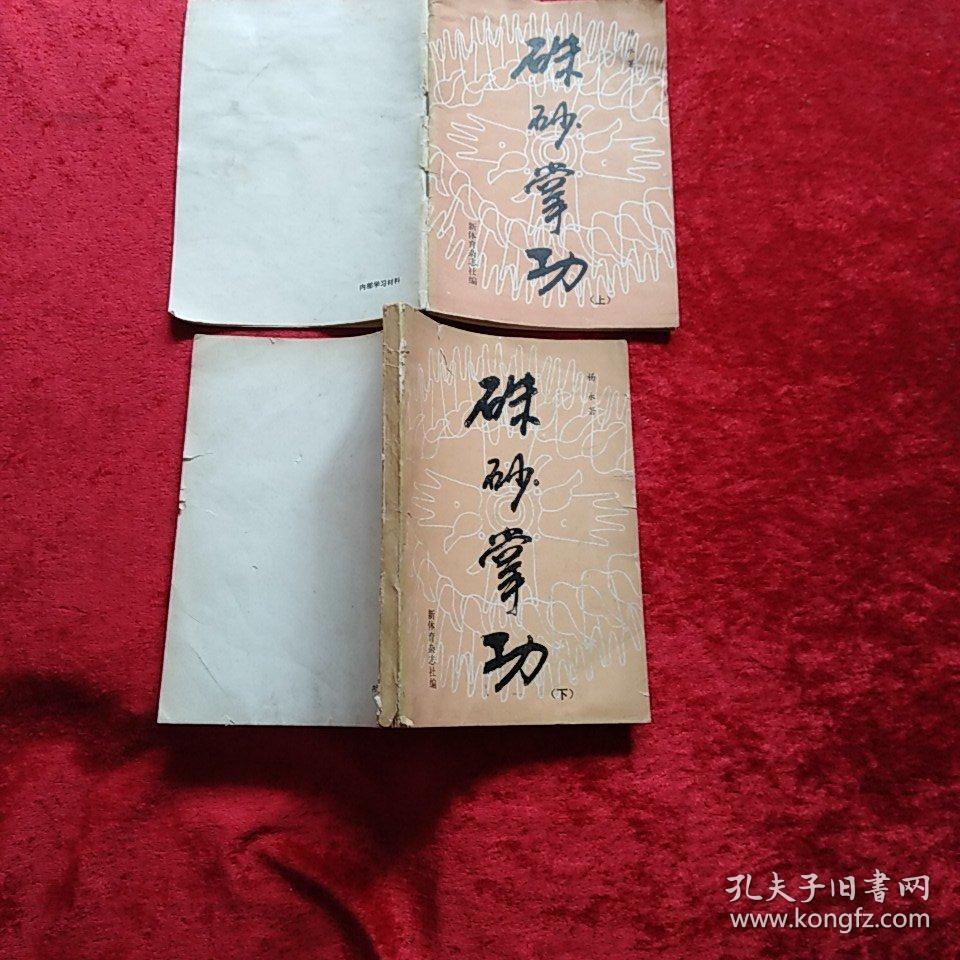 硃砂掌功
(上)
新体育杂志社编
内部学习材料
硃砂掌功
(下)
杨永
新体育杂志社编
孔夫子旧書网
www.kongfz.com